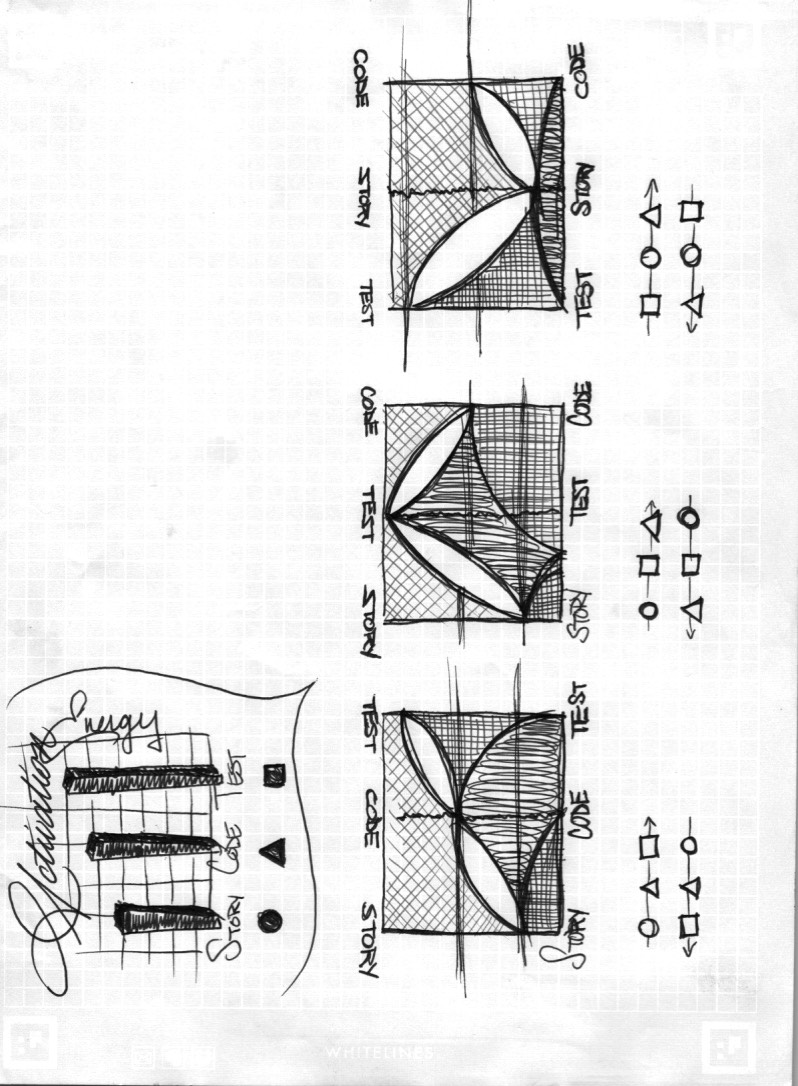 Motivation
Energy
Story CODE TEST
STORY CODE TEST
STORY CODE TEST
STORY TEST CODE
STORY TEST CODE
TEST STORY CODE
TEST STORY CODE
WHITELINES